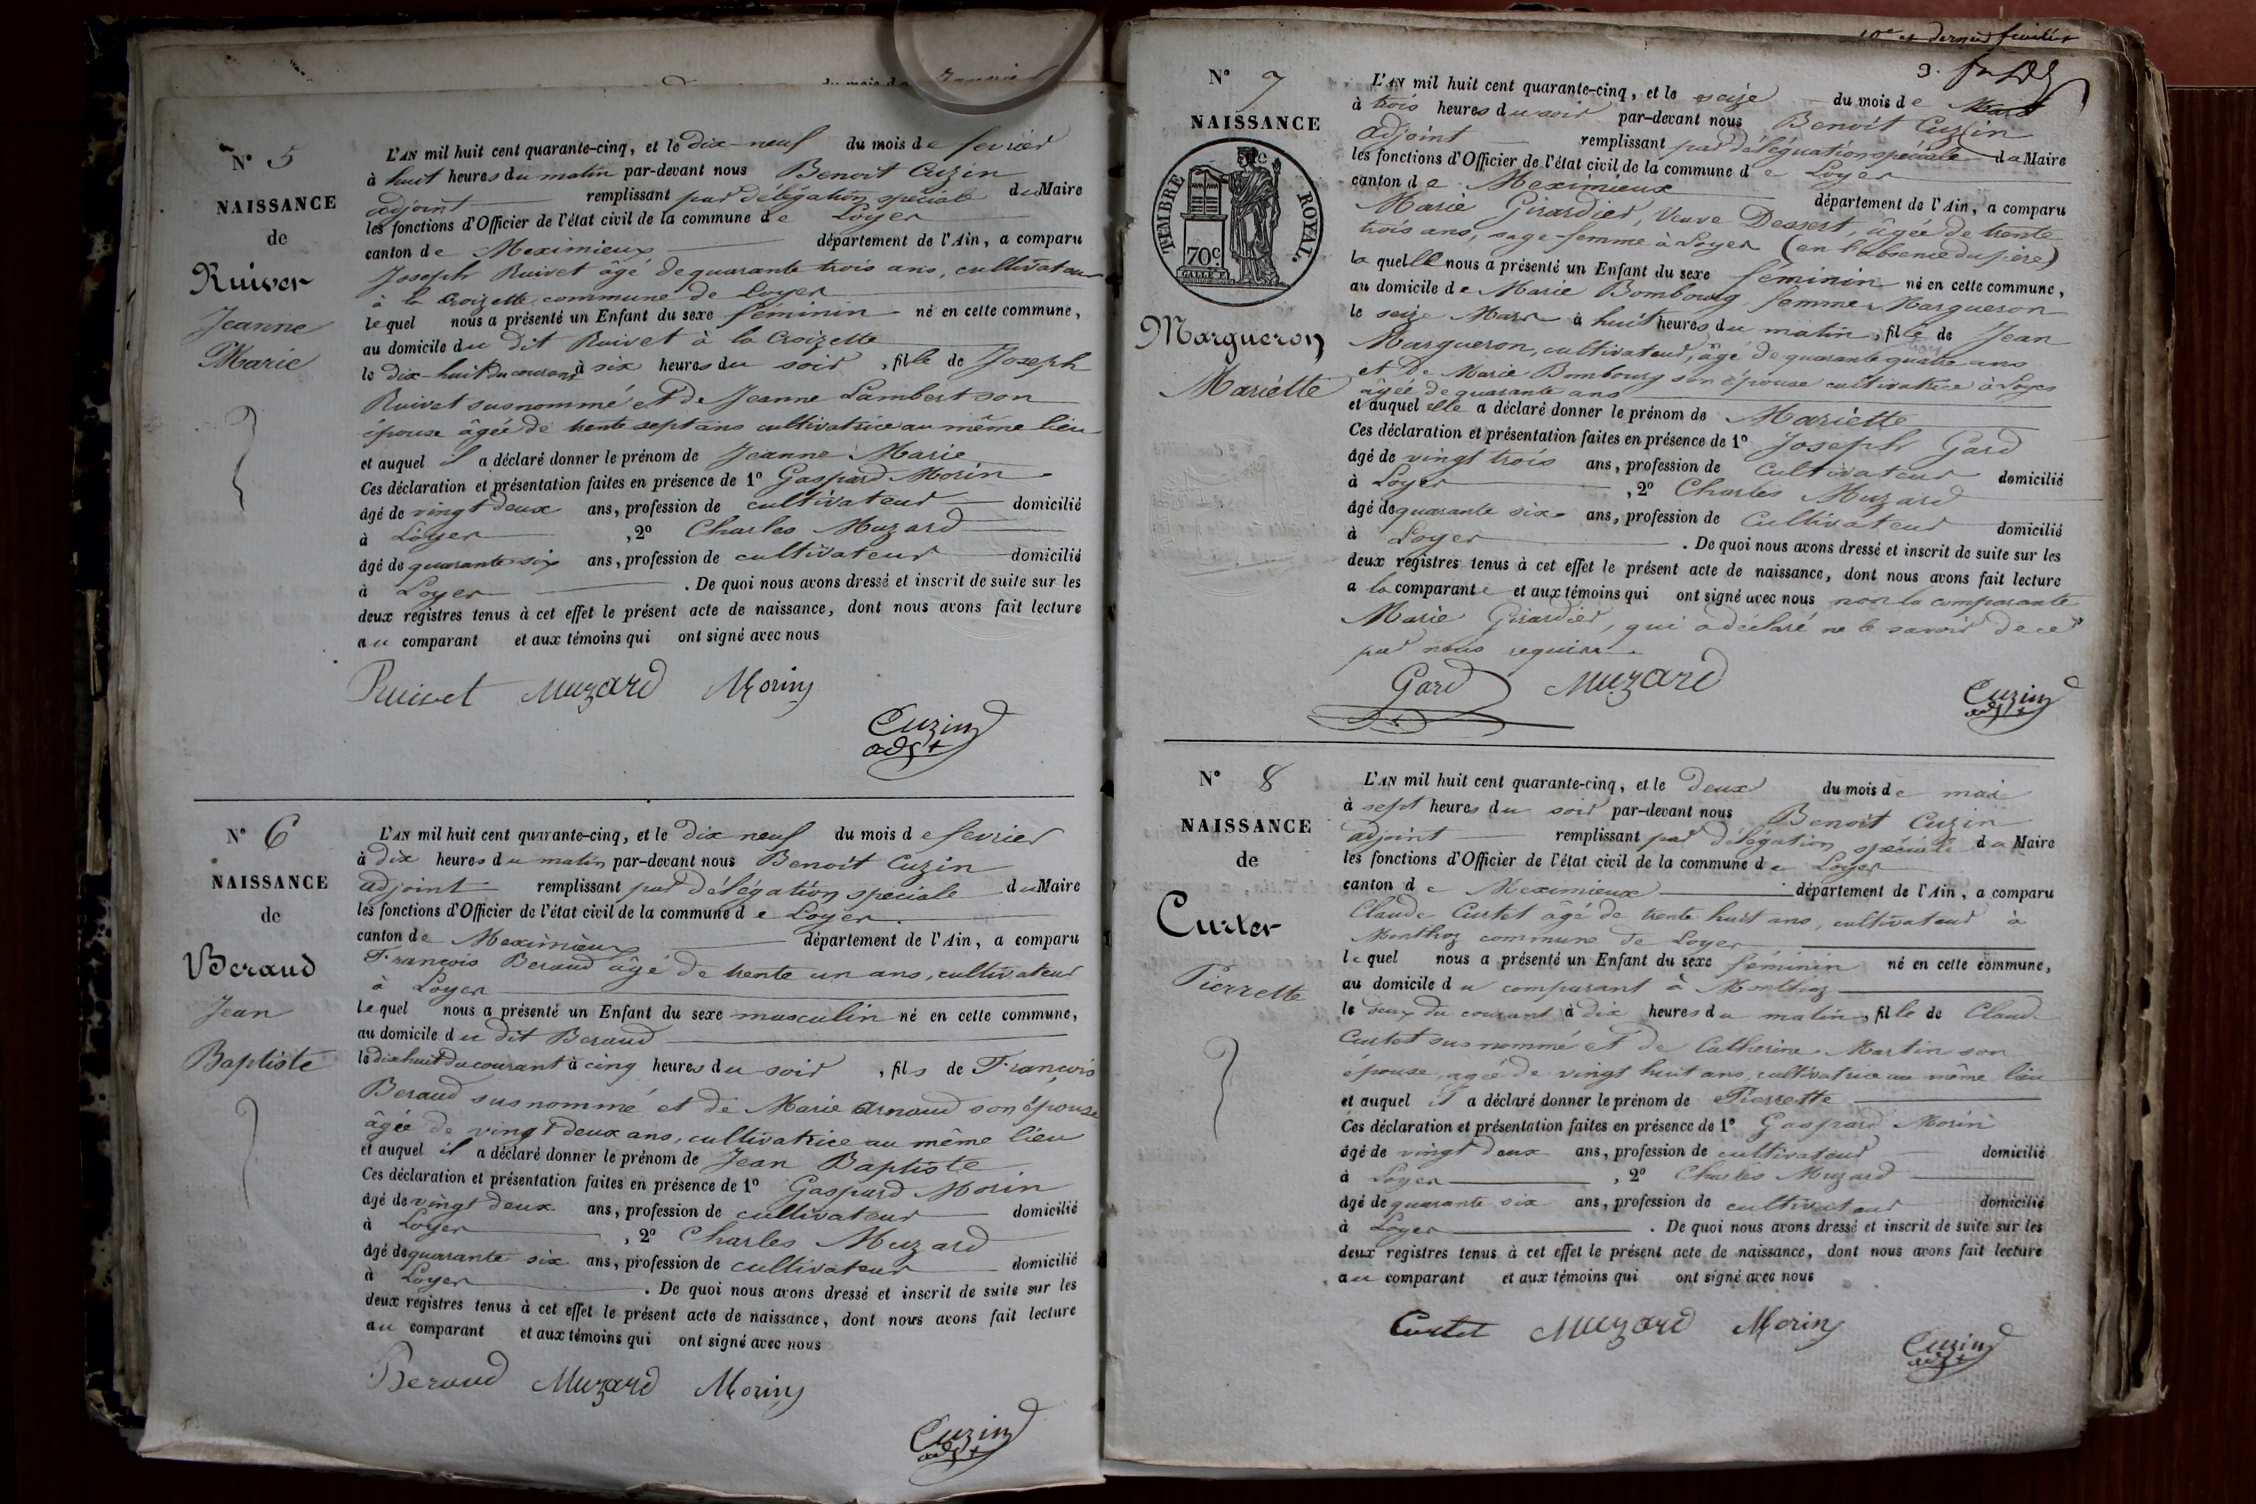 du mois de Janvier
N° 5
NAISSANCE
de
Ruivet
Jeanne
Marie
L'AN mil huit cent quarante-cinq, et le dix-neuf du mois de fevrier
à huit heures du matin par-devant nous Benoit Cuzin
adjoint remplissant par délégation spéciale du Maire
les fonctions d'Officier de l'état civil de la commune de Loyes
canton de Meximieux département de l'Ain, a comparu
Joseph Ruivet âgé de quarante trois ans, cultivateur
à la Croizette commune de Loyes
lequel nous a présenté un Enfant du sexe féminin né en cette commune,
au domicile du dit Ruivet à la Croizette
le dix-huit du courant à six heures du soir, fille de Joseph
Ruivet susnommé et de Jeanne Lambert son
épouse âgée de trente sept ans cultivatrice au même lieu
et auquel il a déclaré donner le prénom de Jeanne Marie
Ces déclaration et présentation faites en présence de 1° Gaspard Morin
âgé de vingt deux ans, profession de cultivateur domicilié
à Loyes, 2° Charles Muzard
âgé de quarante six ans, profession de cultivateur domicilié
à Loyes. De quoi nous avons dressé et inscrit de suite sur les
deux registres tenus à cet effet le présent acte de naissance, dont nous avons fait lecture
au comparant et aux témoins qui ont signé avec nous
Ruivet Muzard Morin
Cuzin
adjt
N° 6
NAISSANCE
de
Beraud
Jean
Baptiste
L'AN mil huit cent quarante-cinq, et le dix neuf du mois de fevrier
à dix heures du matin par-devant nous Benoit Cuzin
adjoint remplissant par délégation spéciale du Maire
les fonctions d'Officier de l'état civil de la commune de Loyes
canton de Meximieux département de l'Ain, a comparu
François Beraud âgé de trente un ans, cultivateur
à Loyes
lequel nous a présenté un Enfant du sexe masculin né en cette commune,
au domicile du dit Beraud
le dix huit du courant à cinq heures du soir, fils de François
Beraud susnommé et de Marie Arnaud son épouse
âgée de vingt deux ans, cultivatrice au même lieu
et auquel il a déclaré donner le prénom de Jean Baptiste
Ces déclaration et présentation faites en présence de 1° Gaspard Morin
âgé de vingt deux ans, profession de cultivateur domicilié
à Loyes, 2° Charles Muzard
âgé de quarante six ans, profession de cultivateur domicilié
à Loyes. De quoi nous avons dressé et inscrit de suite sur les
deux registres tenus à cet effet le présent acte de naissance, dont nous avons fait lecture
au comparant et aux témoins qui ont signé avec nous
Beraud Muzard Morin
Cuzin
adjt
10e et dernier feuillet
N° 7
NAISSANCE
TIMBRE ROYAL.
70c
Margueron
Mariette
L'AN mil huit cent quarante-cinq, et le seize du mois de Mars
à trois heures du soir par-devant nous Benoit Cuzin
adjoint remplissant par déléguation spéciale du Maire
les fonctions d'Officier de l'état civil de la commune de Loyes
canton de Meximieux département de l'Ain, a comparu
Marie Girardier, Veuve Dessert, âgée de trente
trois ans, sage-femme à Loyes (en l'absence du père)
laquelle nous a présenté un Enfant du sexe féminin né en cette commune,
au domicile de Marie Bombourg femme Margueron
le seize Mars à huit heures du matin, fille de Jean
Margueron, cultivateur, âgé de quarante quatre ans
et de Marie Bombourg son épouse cultivatrice à Loyes
âgée de quarante ans
et auquel elle a déclaré donner le prénom de Mariette
Ces déclaration et présentation faites en présence de 1° Joseph Gard
âgé de vingt trois ans, profession de cultivateur domicilié
à Loyes, 2° Charles Muzard
âgé de quarante six ans, profession de Cultivateur domicilié
à Loyes. De quoi nous avons dressé et inscrit de suite sur les
deux registres tenus à cet effet le présent acte de naissance, dont nous avons fait lecture
a la comparante et aux témoins qui ont signé avec nous non la comparante
Marie Girardier, qui a déclaré ne le savoir de ce
par nous requise
Gard Muzard
Cuzin
adjt
N° 8
NAISSANCE
de
Curtet
Pierrette
L'AN mil huit cent quarante-cinq, et le deux du mois de mai
à sept heures du soir par-devant nous Benoit Cuzin
adjoint remplissant par délégation spéciale du Maire
les fonctions d'Officier de l'état civil de la commune de Loyes
canton de Meximieux département de l'Ain, a comparu
Claude Curtet âgé de trente huit ans, cultivateur à
Monthoz commune de Loyes
lequel nous a présenté un Enfant du sexe féminin né en cette commune,
au domicile du comparant à Monthoz
le deux du courant à dix heures du matin, fille de Claude
Curtet susnommé et de Catherine Martin son
épouse, agée de vingt huit ans, cultivatrice au même lieu
et auquel il a déclaré donner le prénom de Pierrette
Ces déclaration et présentation faites en présence de 1° Gaspard Morin
âgé de vingt deux ans, profession de cultivateur domicilié
à Loyes, 2° Charles Muzard
âgé de quarante six ans, profession de cultivateur domicilié
à Loyes. De quoi nous avons dressé et inscrit de suite sur les
deux registres tenus à cet effet le présent acte de naissance, dont nous avons fait lecture
au comparant et aux témoins qui ont signé avec nous
Curtet Muzard Morin
Cuzin
adjt